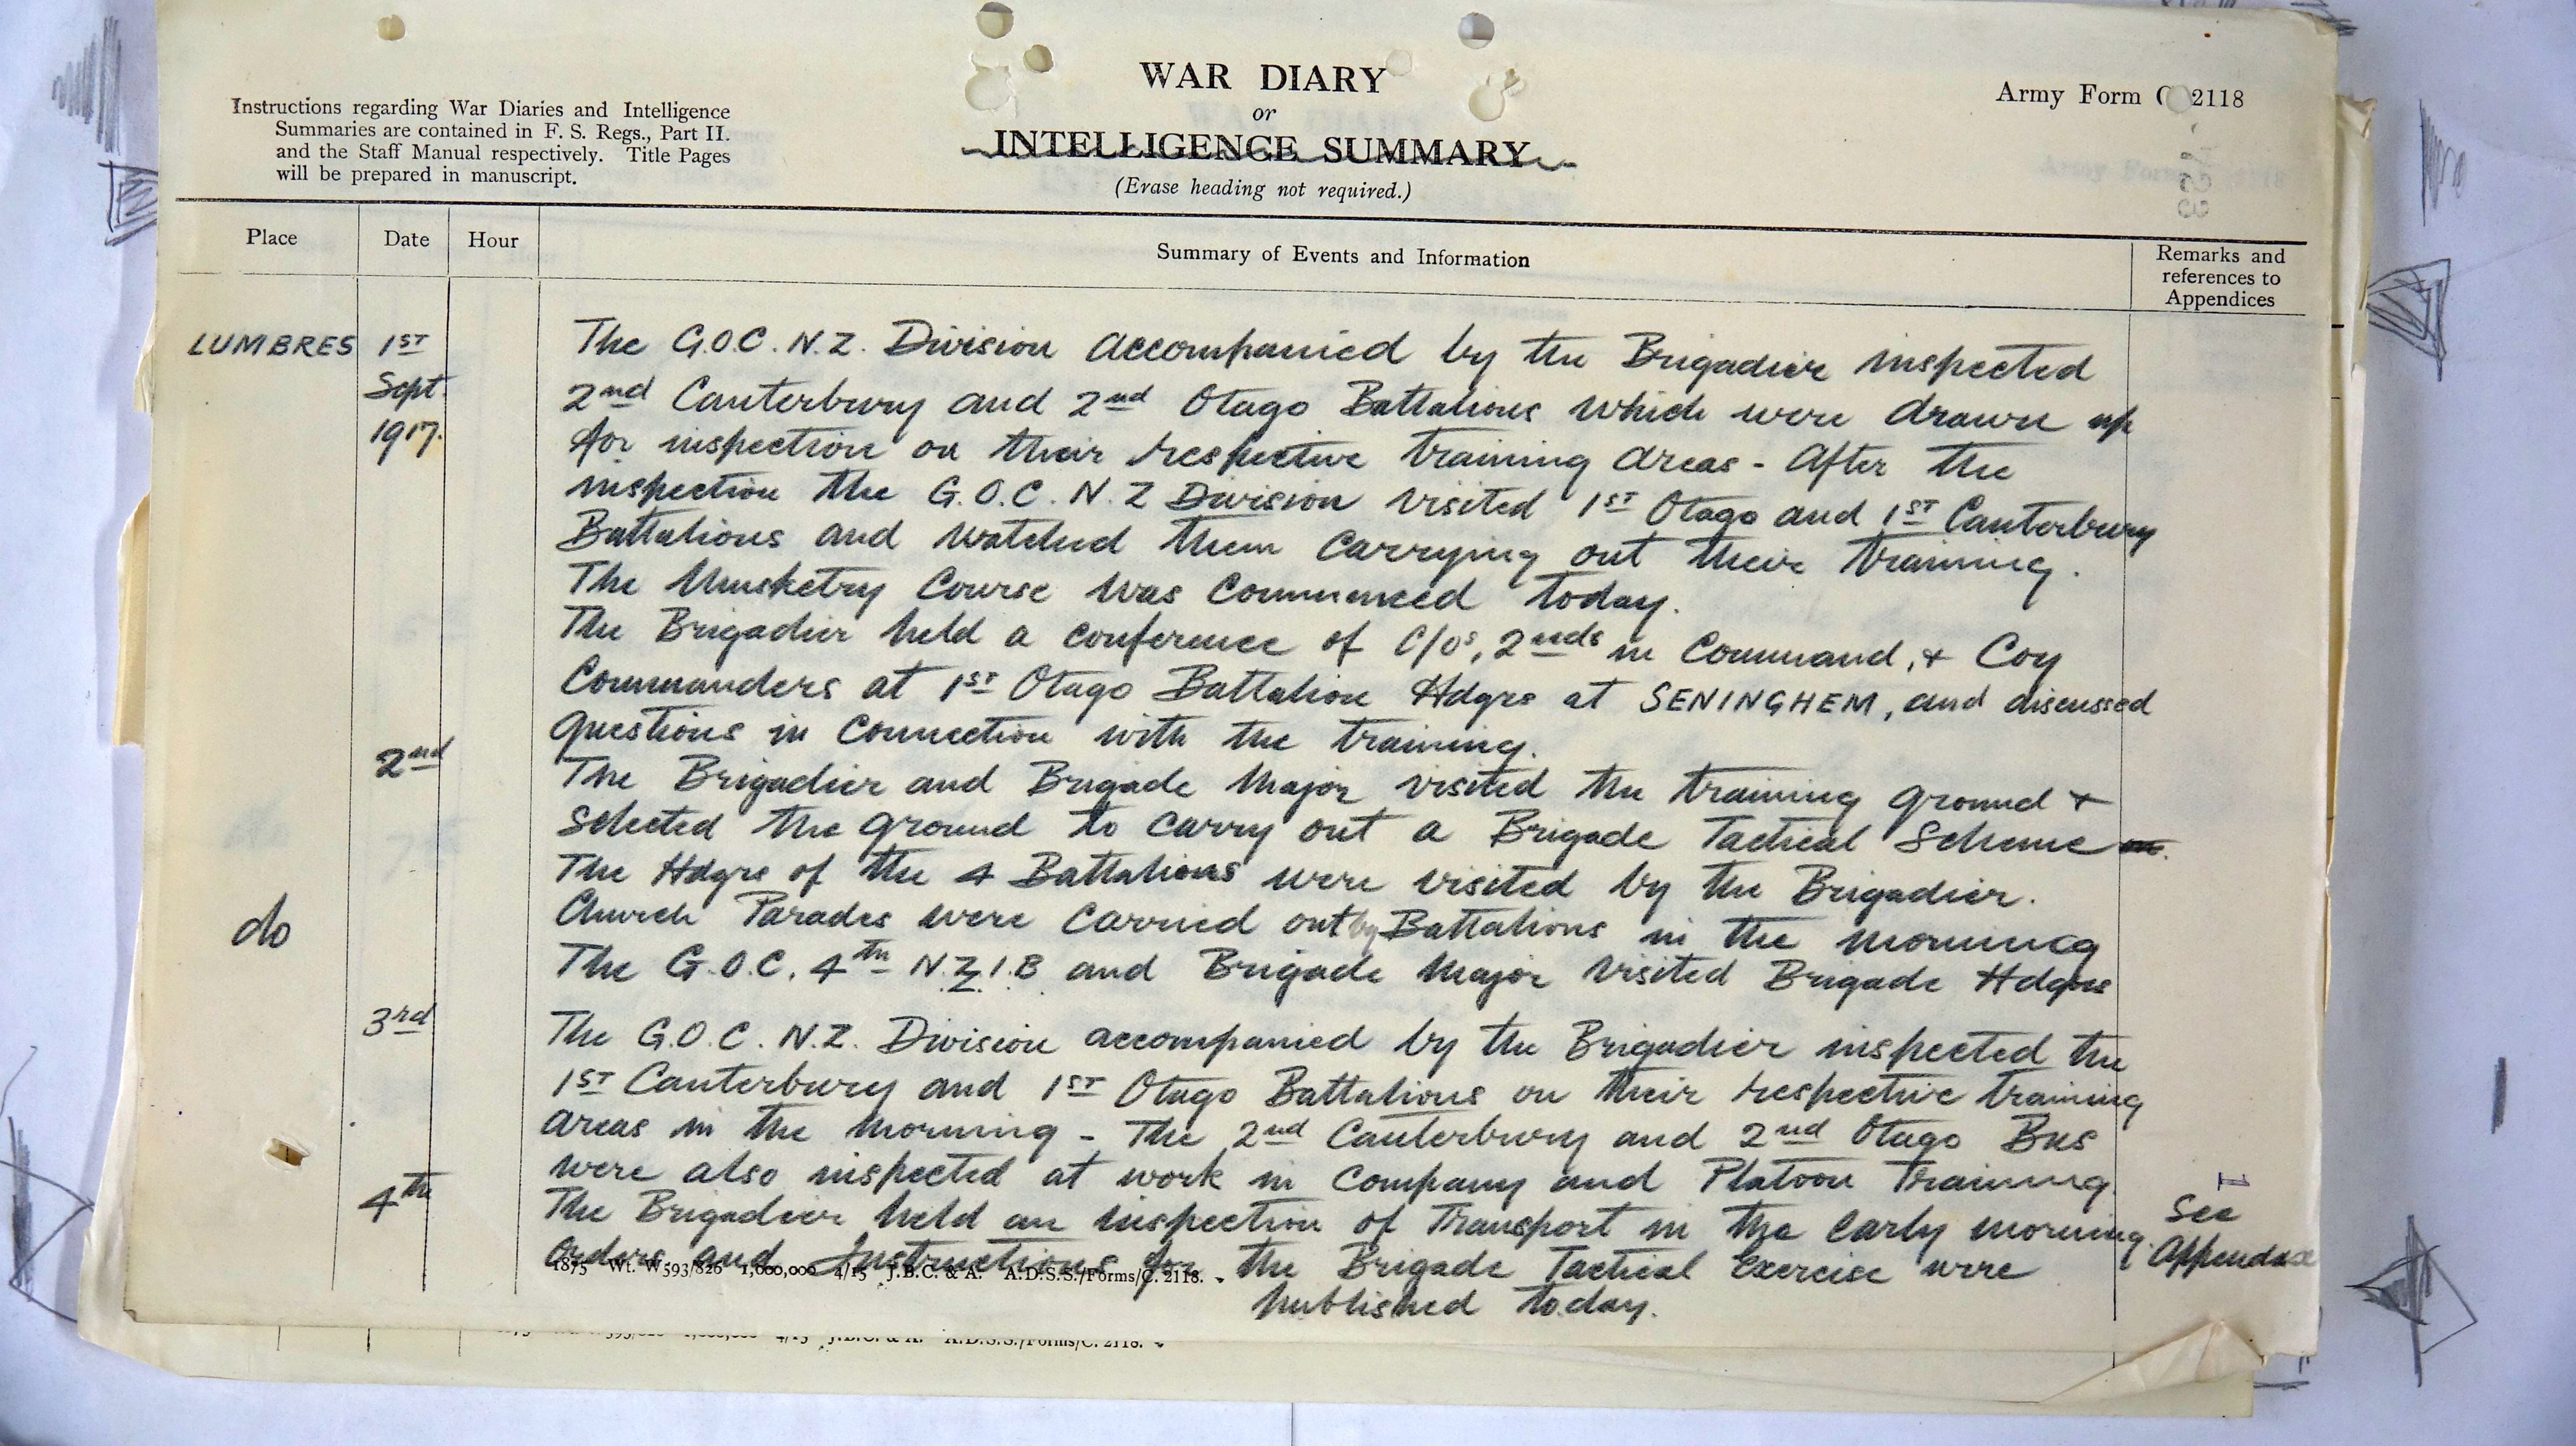 WAR DIARY
or
INTELLIGENCE SUMMARY
(Erase heading not required.)
Army Form C 2118
Instructions regarding War Diaries and Intelligence
Summaries are contained in F. S. Regs., Part II.
and the Staff Manual respectively. Title Pages
will be prepared in manuscript.
Place Date Hour Summary of Events and Information Remarks and references to Appendices
LUMBRES 1ST The G.O.C. N.Z. Division accompanied by the Brigadier inspected
Sept. 2nd Canterbury and 2nd Otago Battalions which were drawn up
1917. for inspection on their respective training areas - After the
inspection the G.O.C. N.Z Division visited 1ST Otago and 1ST Canterbury
Battalions and watched them carrying out their training.
The Musketry Course was commenced today.
The Brigadier held a conference of C/Os, 2nds in Command, & Coy
Commanders at 1ST Otago Battalion Hdqrs at SENINGHEM, and discussed
questions in connection with the training.
2nd The Brigadier and Brigade Major visited the training ground &
selected the ground to carry out a Brigade Tactical Scheme
The Hdqrs of the 4 Battalions were visited by the Brigadier.
do Church Parades were carried out by Battalions in the morning
The G.O.C. 4th N.Z.I.B and Brigade Major visited Brigade Hdqrs
3rd The G.O.C. N.Z. Division accompanied by the Brigadier inspected the
1ST Canterbury and 1ST Otago Battalions on their respective training
areas in the morning - The 2nd Canterbury and 2nd Otago Bns
were also inspected at work in Company and Platoon Training.
4th The Brigadier held an inspection of Transport in the early morning. I See
Orders and Instructions for the Brigade Tactical Exercise were Appendix
published today.
1875 Wt. W593/826 1,000,000 4/15 J.B.C. & A. A.D.S.S./Forms/C. 2118.
J.B.C. & A. A.D.S.S./Forms/C. 2118.